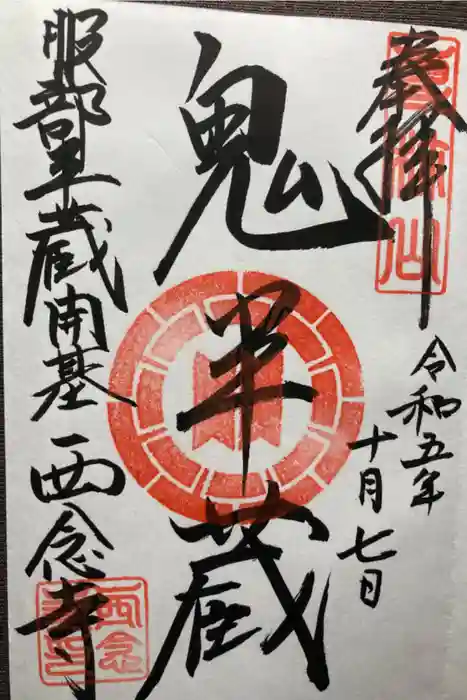 奉拝
令和五年
十月七日
鬼半蔵
服部半蔵開基 西念寺